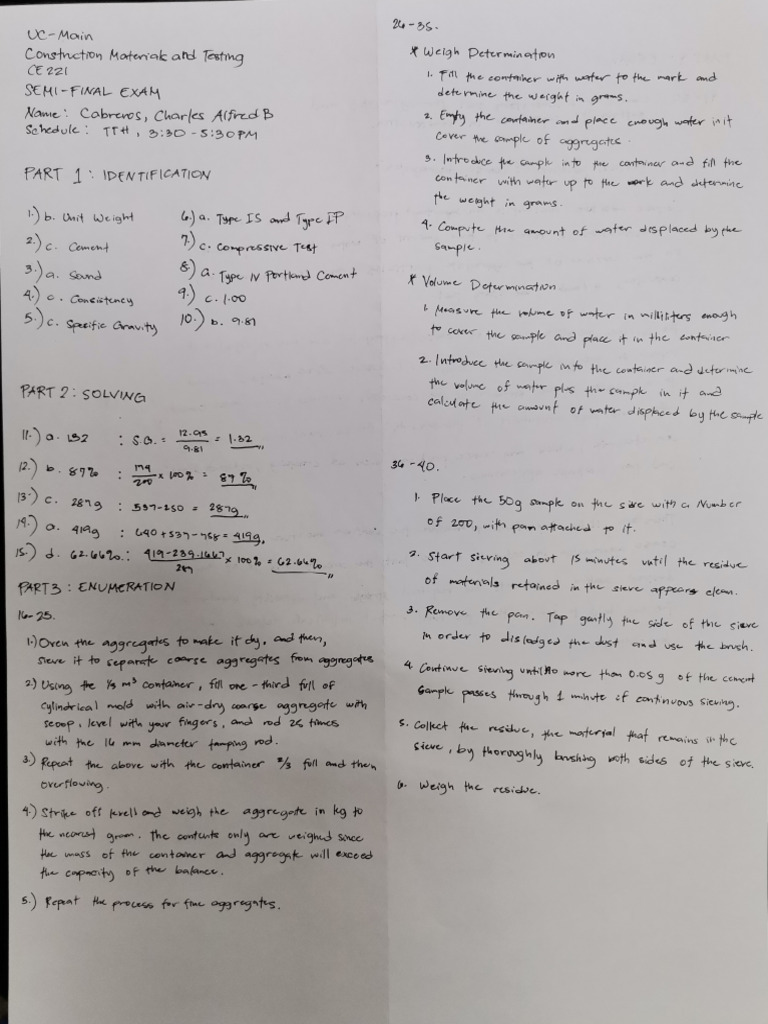 UC-Main
Construction Materials and Testing
CE 221
SEMI-FINAL EXAM
Name: Cabreros, Charles Alfred B
Schedule: TTH, 3:30-5:30PM
PART 1: IDENTIFICATION
1.) b. Unit Weight
2.) c. Cement
3.) a. Sound
4.) c. Consistency
5.) c. Specific Gravity
6.) a. Type IS and Type IP
7.) c. Compressive Test
8.) a. Type IV Portland Cement
9.) c. 1.00
10.) b. 9.81
PART 2: SOLVING
11.) a. 132 : S.G. = 12.95/9.81 = 1.32
12.) b. 87% : 174/200 x 100% = 87%
13.) c. 287g : 537-250 = 287g
14.) a. 419g : 640+537-758 = 419g
15.) d. 62.66%.: 419-239.1667/287 x 100% = 62.66%
PART 3: ENUMERATION
16-25.
1.) Oven the aggregates to make it dry, and then,
sieve it to separate coarse aggregates from aggregates
2.) Using the 1/3 m³ container, fill one-third full of
cylindrical mold with air-dry coarse aggregate with
scoop, level with your fingers, and rod 25 times
with the 16 mm diameter tamping rod.
3.) Repeat the above with the container 2/3 full and then
overflowing.
4.) Strike off level and weigh the aggregate in kg to
the nearest gram. The contents only are weighed since
the mass of the container and aggregate will exceed
the capacity of the balance.
5.) Repeat the process for fine aggregates.
26-35.
* Weigh Determination
1. Fill the container with water to the mark and
determine the weight in grams.
2. Empty the container and place enough water in it
cover the sample of aggregates.
3. Introduce the sample into the container and fill the
container with water up to the mark and determine
the weight in grams.
4. Compute the amount of water displaced by the
sample.
* Volume Determination
1. Measure the volume of water in milliliters enough
to cover the sample and place it in the container
2. Introduce the sample into the container and determine
the volume of water plus the sample in it and
calculate the amount of water displaced by the sample
36-40.
1. Place the 50g sample on the sieve with a Number
of 200, with pan attached to it.
2. Start sieving about 15 minutes until the residue
of materials retained in the sieve appears clean.
3. Remove the pan. Tap gently the side of the sieve
in order to dislodged the dust and use the brush.
4. Continue sieving until No more than 0.05 g of the cement
sample passes through 1 minute of continuous sieving.
5. Collect the residue, the material that remains in the
sieve, by thoroughly brushing both sides of the sieve.
6. Weigh the residue.